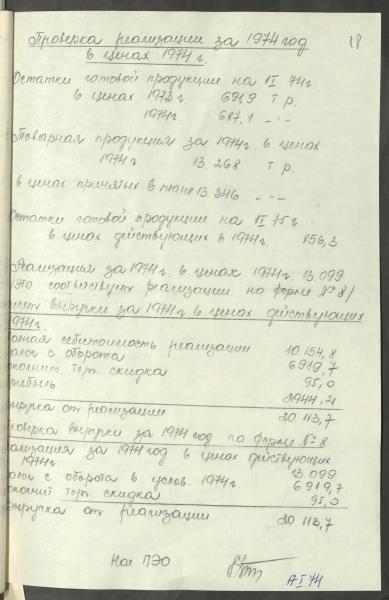 18
Проверка реализации за 1974 год
в ценах 1974 г.
Остатки готовой продукции на 1/I 74г.
в ценах 1973 г. 691,9 т.р.
1974г. 687,1 -·-
Товарная продукция за 1974г. в ценах
1974г. 13.268 т.р.
в ценах принятых в плане 13.346 -·-
Остатки готовой продукции на 1/I 75 г.
в ценах действующих в 1974г. 856,3
Реализация за 1974г. в ценах 1974г. 13.099
/Это соответствует реализации по форме № 8/
выручки за 1974 г. в ценах действующих
1974г.
себестоимость реализации 10.154,8
налог с оборота 6919,7
торг. скидка 95,0
прибыль 2944,2
выручка от реализации 20.113,7
Проверка выручки за 1974 год по форме № 8
Реализация за 1974 год в ценах действующих
1974г. 13.099
налог с оборота в услов. 1974г. 6919,7
торг. скидка 95,0
Выручка от реализации 20.113,7
Нач ПЭО